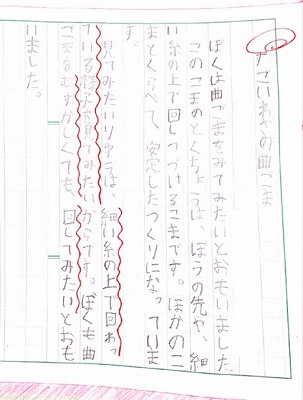 すごいわざの曲ごま
ぼくは曲ごまをみてみたいとおもいました。
このこまのとくちょうは、ぼうの先や、細
い糸の上で回しつづけるこまです。ほかのこ
まとくらべて、安定したつくりになっていま
す。
見てみたいりゆうは、細い糸の上で回わっ
ている様子を見てみたいからです。ぼくも曲
ごまをむずかしくても、回してみたいとおも
いました。